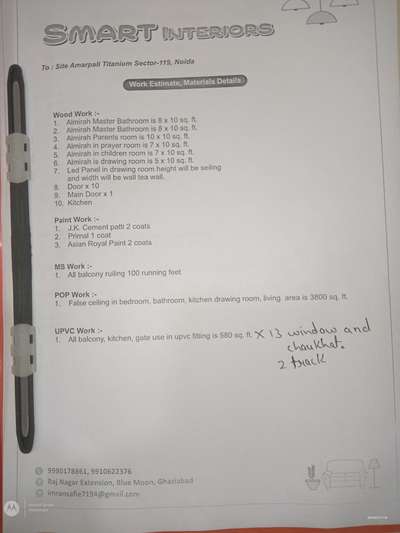 SMART INTERIORS
To : Site Amarpali Titanium Sector-119, Noida
Work Estimate, Materials Details
Wood Work :-
1. Almirah Master Bathroom is 8 x 10 sq. ft.
2. Almirah Master Bathroom is 8 x 10 sq. ft.
3. Almirah Parents room is 10 x 10 sq. ft.
4. Almirah in prayer room is 7 x 10 sq. ft.
5. Almirah in children room is 7 x 10 sq. ft.
6. Almirah is drawing room is 5 x 10 sq. ft.
7. Led Panel in drawing room height will be seiling
and width will be wall tea wall.
8. Door x 10
9. Main Door x 1
10. Kitchen
Paint Work :-
1. J.K. Cement patti 2 coats
2. Primal 1 coat
3. Asian Royal Paint 2 coats
MS Work :-
1. All balcony ruiling 100 running feet
POP Work :-
1. False ceiling in bedroom, bathroom, kitchen drawing room, living area is 3800 sq. ft.
UPVC Work :-
1. All balcony, kitchen, gate use in upvc fitting is 580 sq. ft. X 13 window and
chaukhat.
2 track
9990178861, 9910622376
Raj Nagar Extension, Blue Moon, Ghaziabad
imransafie7194@gmail.com
AA